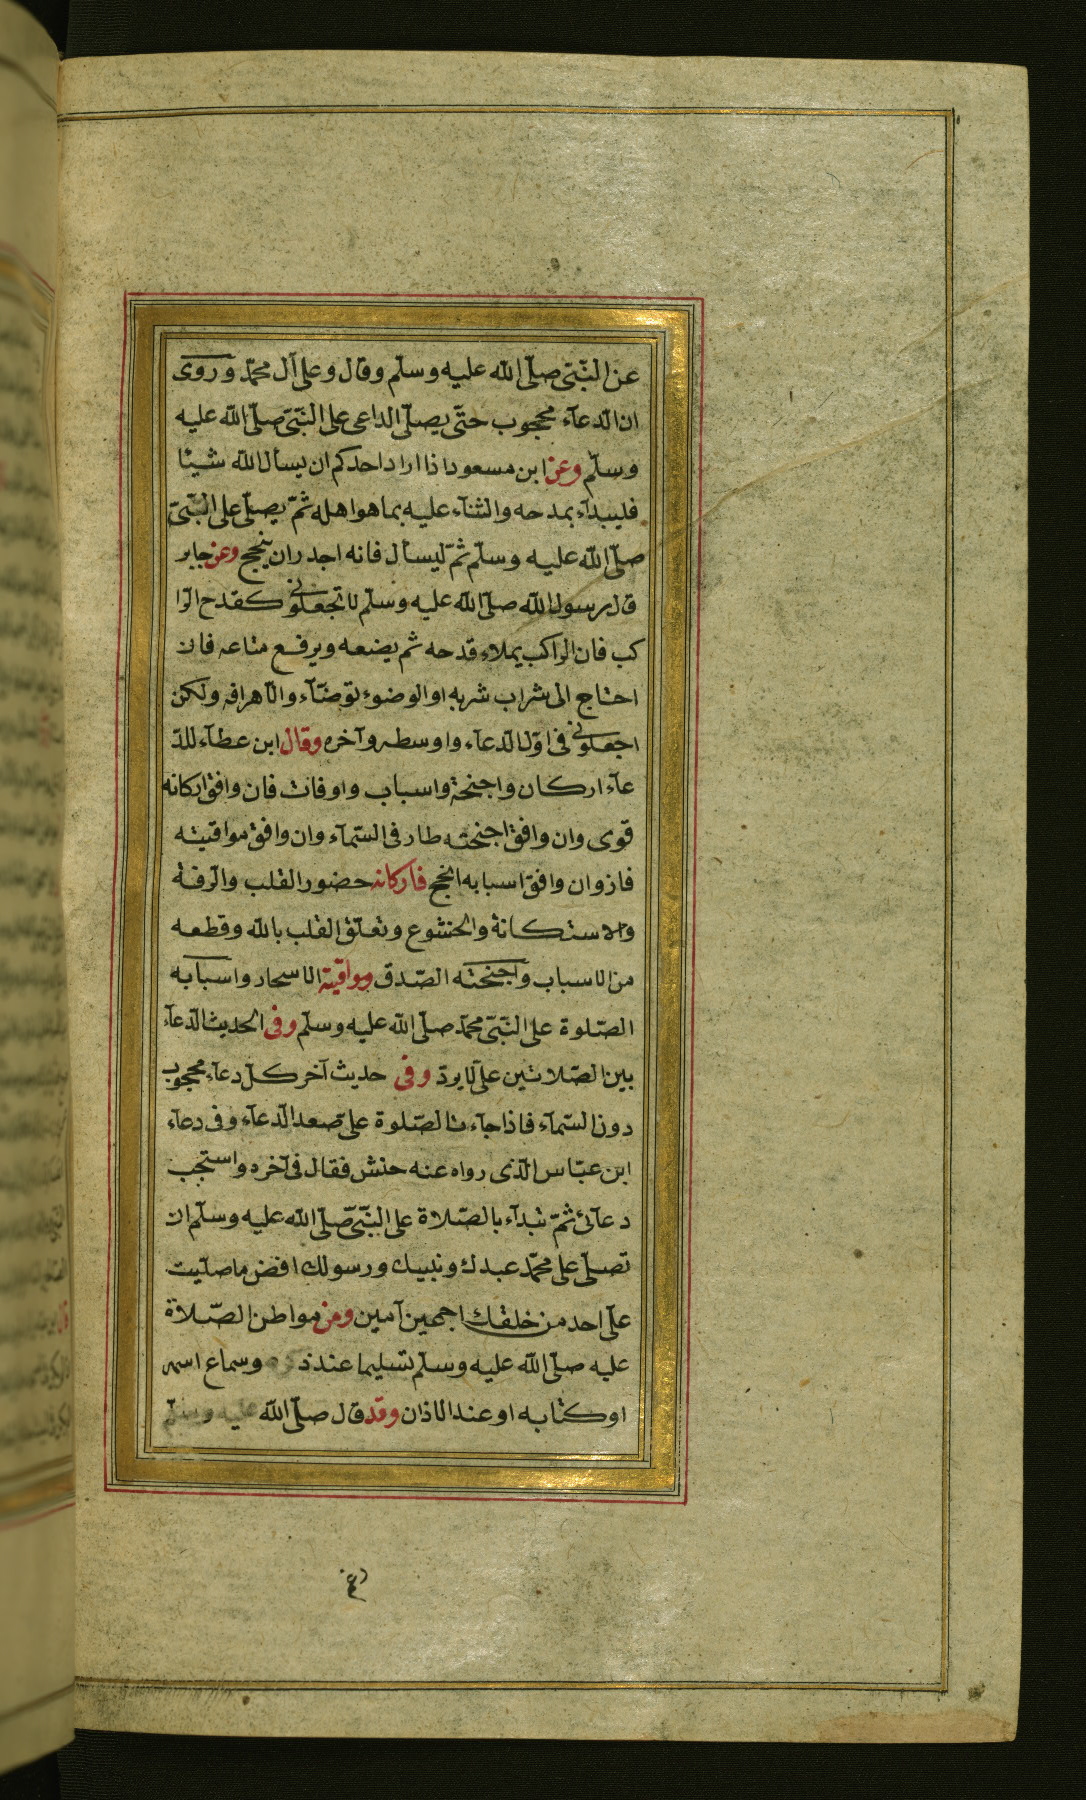 عن النّبّى صلّى اللّه عليه وسلّم وقال وعلى آل محمّد وروى
ان الدّعآء محجوب حتّى يصلّى الداعى على النّبّى صلّى اللّه عليه
وسلّم وعن ابن مسعود اذا اراد احدكم ان يسأل اللّه شيئا
فليبدآء بمدحه والثنآء عليه بما هو اهله ثمّ يصلّى على النّبّى
صلّى اللّه عليه وسلّم ثمّ ليسأل فانه اجدر ان ينجح وعن جابر
قال رسول اللّه صلّى اللّه عليه وسلّم لا تجعلونى كقدح الرّا
كب فان الراكب يملاء قدحه ثم يضعه ويرفع متاعه فان
احتاج الى شراب شربه او الوضوء توضّآء والّا هراقه ولكن
اجعلونى فى اوّل الدّعآء واوسطه وآخره وقال ابن عطآء للدّ
عآء اركان واجنحة واسباب واوقات فان وافق اركانه
قوى وان وافق اجنحته طار فى السّمآء وان وافق مواقيته
فاز وان وافق اسبابه انجح فاركانه حضور القلب والرّقة
والاستكانة والخشوع وتعلّق القلب باللّه وقطعه
من الاسباب واجنحته الصّدق ومواقيته الاسحار واسبابه
الصّلوة على النّبّى محمّد صلّى اللّه عليه وسلّم وفى الحديث الدّعآء
بين الصّلاتين علىّ لا يردّ وفى حديث آخر كلّ دعآء محجوب
دون السّمآء فاذا جآءت الصّلوة علىّ صعد الدّعآء وفى دعآء
ابن عبّاس الّذى رواه عنه حنش فقال فى آخره واستجب
دعآئى ثمّ تبدآء بالصّلاة على النّبّى صلّى اللّه عليه وسلّم ان
تصلّى على محمّد عبدك ونبيك ورسولك افضل ما صلّيت
على احد من خلقك اجمعين آمين ومن مواطن الصّلاة
عليه صلّى اللّه عليه وسلّم تسليما عند ذكره وسماع اسمه
او كتابه او عند الاذان وقد قال صلّى اللّه عليه وسلّم
رغم